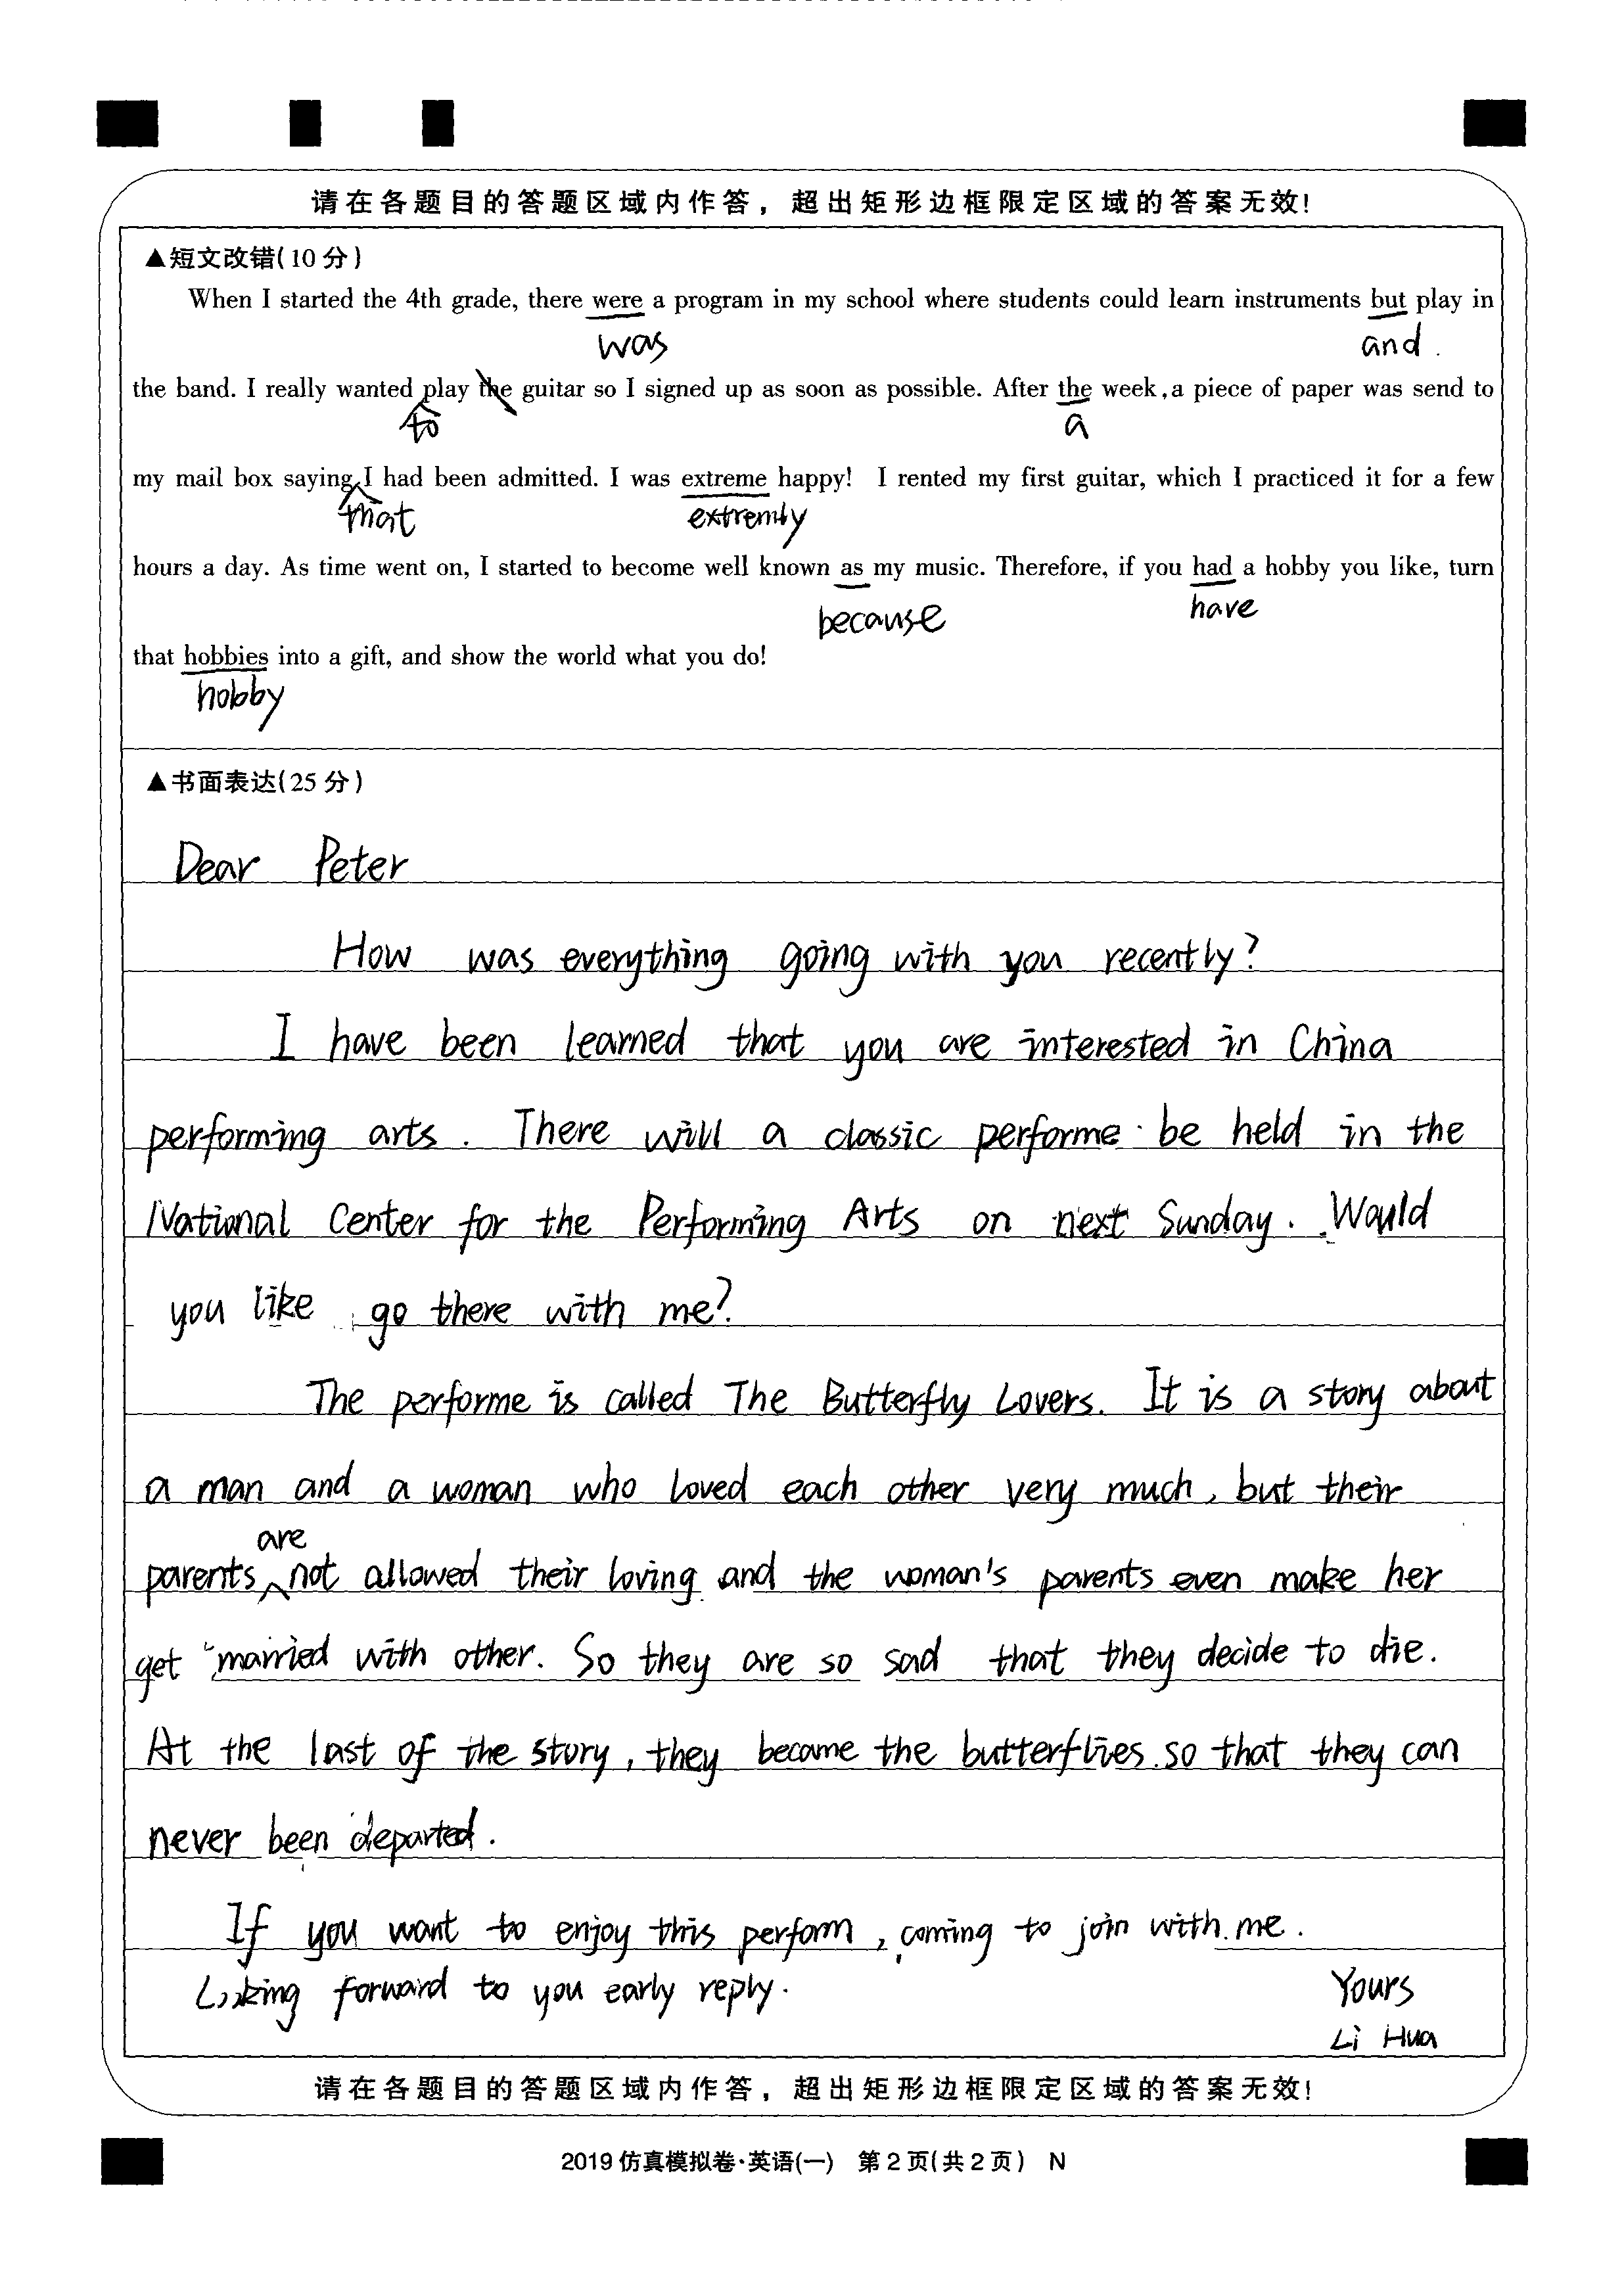 请在各题目的答题区域内作答，超出矩形边框限定区域的答案无效！
▲短文改错(10分)
When I started the 4th grade, there were a program in my school where students could learn instruments but play in
was and.
the band. I really wanted play the guitar so I signed up as soon as possible. After the week,a piece of paper was send to
to a
my mail box saying I had been admitted. I was extreme happy! I rented my first guitar, which I practiced it for a few
that extremly
hours a day. As time went on, I started to become well known as my music. Therefore, if you had a hobby you like, turn
because have
that hobbies into a gift, and show the world what you do!
hobby
▲书面表达(25分)
Dear Peter
How was everything going with you recently?
I have been learned that you are interested in China
performing arts. There will a classic performe be held in the
National Center for the Performing Arts on next Sunday. Would
you like go there with me?
The performe is called The Butterfly Lovers. It is a story about
a man and a woman who loved each other very much, but their
are
parents not allowed their loving and the woman's parents even make her
get married with other. So they are so sad that they decide to die.
At the last of the story, they become the butterflies so that they can
never been departed.
If you want to enjoy this perform, coming to join with me.
Looking forward to you early reply. Yours
Li Hua
请在各题目的答题区域内作答，超出矩形边框限定区域的答案无效！
2019仿真模拟卷·英语(一) 第2页(共2页) N